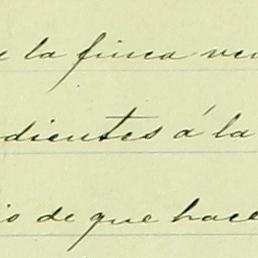 e la finca ven
dientes á la
io de que hace